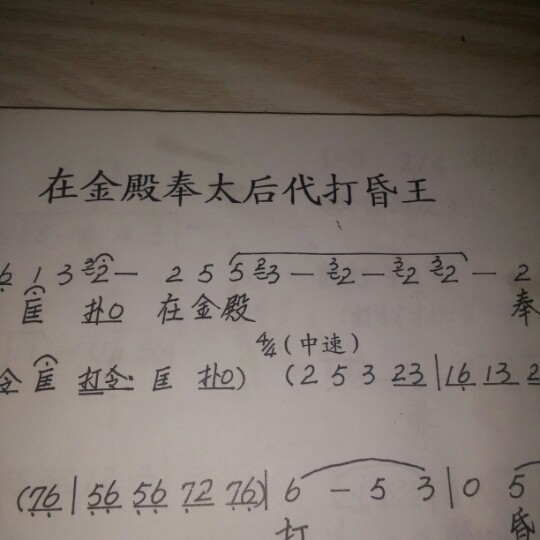 在金殿奉太后代打昏王
6 1 3 3 2 — 2 5 5 2 3 — 3 2 — 3 2 3 2 — 2
匡 扑0 在金殿 奉
4/4(中速)
令 匡 打令· 匡 扑0) (2 5 3 23 | 16 13 2
(76 | 56 56 72 76) | 6 — 5 3 | 0 5
打 昏